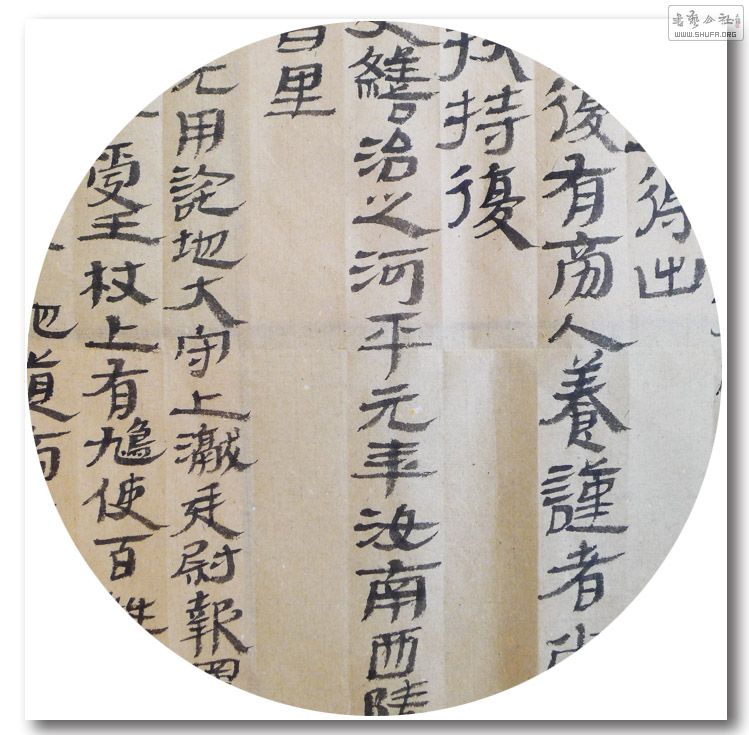 書藝公社
WWW.SHUFA.ORG
得出
後有旁人養謹者
扶持復
繕治之河平元年汝南西陵
百里
用詫地大守上讞廷尉報
受王杖上有鳩使百姓
地道